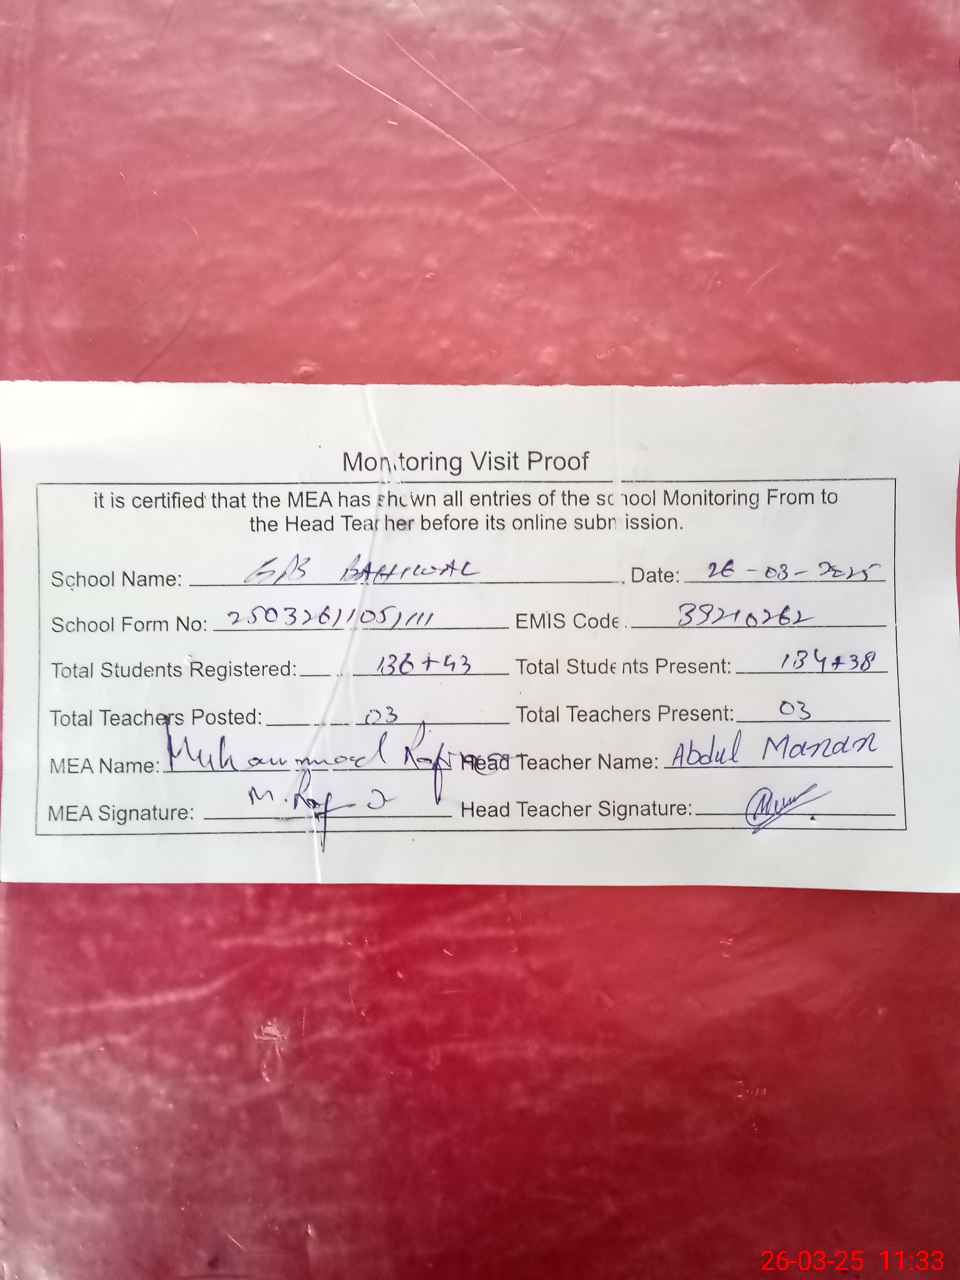 Monitoring Visit Proof
it is certified that the MEA has shown all entries of the school Monitoring From to
the Head Teacher before its online submission.
School Name: GPS BAHIWAL Date: 26-03-2025
School Form No: 250326110511 EMIS Code 39210262
Total Students Registered: 136+43 Total Students Present: 134+38
Total Teachers Posted: 03 Total Teachers Present: 03
MEA Name: Muhammad Head Teacher Name: Abdul Manan
MEA Signature: Head Teacher Signature:
26-03-25 11:33